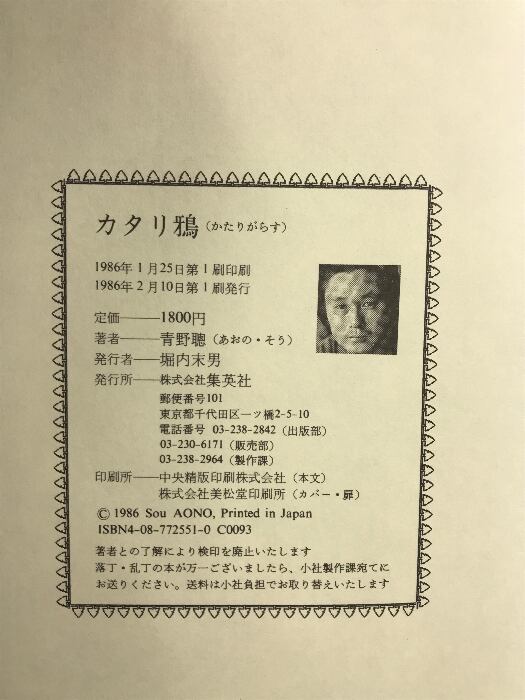 カタリ鴉(かたりがらす)
1986年1月25日第1刷印刷
1986年2月10日第1刷発行
定価――1800円
著者――青野聰(あおの・そう)
発行者――堀内末男
発行所――株式会社集英社
郵便番号101
東京都千代田区一ツ橋2-5-10
電話番号 03-238-2842(出版部)
03-230-6171(販売部)
03-238-2964(製作課)
印刷所――中央精版印刷株式会社(本文)
株式会社美松堂印刷所(カバー・扉)
© 1986 Sou AONO, Printed in Japan
ISBN4-08-772551-0 C0093
著者との了解により検印を廃止いたします
落丁・乱丁の本が万一ございましたら、小社製作課宛てに
お送りください。送料は小社負担でお取り替えいたします